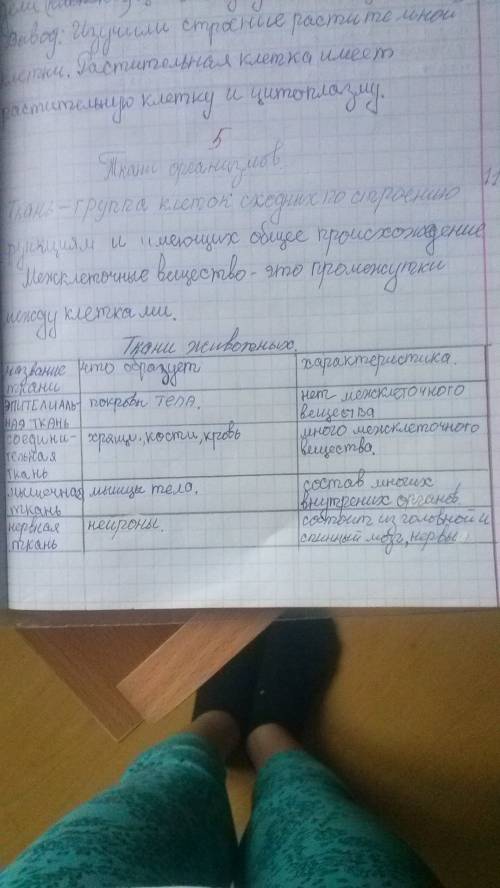 Вывод: Изучили строение растительной
клетки. Растительная клетка имеет
растительную клетку и цитоплазму.
5
Ткани организмов.
11
Ткань - группа клеток сходных по строению
функциям и имеющих общее происхождение
Межклеточные вещество - это промежутки
между клетками.
Ткани животных.
название ткани | что образует | характеристика.
эпителиальная ткань | покровы тела. | нет межклеточного вещества
соединительная ткань | хрящи, кости, кровь | много межклеточного вещества.
мышечная ткань | мышцы тела. | состав многих внутрених органов
нервная ткань | нейроны. | состоит из головной и спинный мозг, нервы